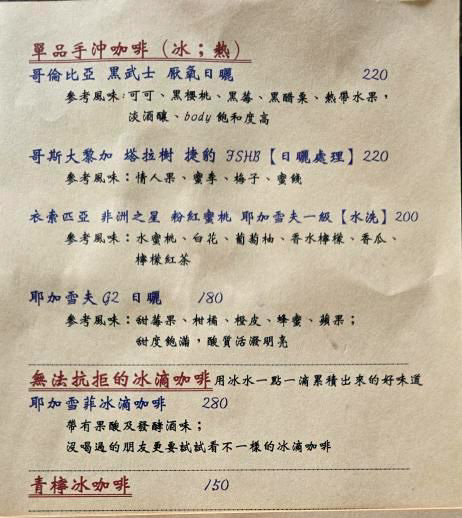 單品手沖咖啡（冰；熱）
哥倫比亞 黑武士 厭氧日曬 220
參考風味：可可、黑櫻桃、黑莓、黑醋栗、熱帶水果，
淡酒釀、body飽和度高
哥斯大黎加 塔拉樹 捷豹 FSHB【日曬處理】220
參考風味：情人果、蜜李、梅子、蜜餞
衣索匹亞 非洲之星 粉紅蜜桃 耶加雪夫一級【水洗】200
參考風味：水蜜桃、白花、葡萄柚、香水檸檬、香瓜、
檸檬紅茶
耶加雪夫G2 日曬 180
參考風味：甜莓果、柑橘、橙皮、蜂蜜、蘋果；
甜度飽滿，酸質活潑明亮
無法抗拒的冰滴咖啡 用冰水一點一滴累積出來的好味道
耶加雪菲冰滴咖啡 280
帶有果酸及發酵酒味；
沒喝過的朋友更要試試看不一樣的冰滴咖啡
青檸冰咖啡 150